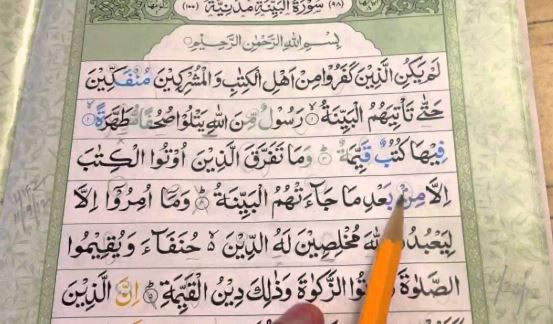 سُوْرَةُ الْبَيِّنَةِ مَدَنِيَّةٌ (٩٨) (١٠٠)
بِسْمِ اللّٰهِ الرَّحْمٰنِ الرَّحِيْمِ
لَمْ يَكُنِ الَّذِيْنَ كَفَرُوْا مِنْ اَهْلِ الْكِتٰبِ وَالْمُشْرِكِيْنَ مُنْفَكِّيْنَ
حَتّٰى تَاْتِيَهُمُ الْبَيِّنَةُ ۙ١ رَسُوْلٌ مِّنَ اللّٰهِ يَتْلُوْا صُحُفًا مُّطَهَّرَةً ۙ٢
فِيْهَا كُتُبٌ قَيِّمَةٌ ؕ٣ وَمَا تَفَرَّقَ الَّذِيْنَ اُوْتُوا الْكِتٰبَ
اِلَّا مِنْۢ بَعْدِ مَا جَآءَتْهُمُ الْبَيِّنَةُ ؕ٤ وَمَاۤ اُمِرُوْۤا اِلَّا
لِيَعْبُدُوا اللّٰهَ مُخْلِصِيْنَ لَهُ الدِّيْنَ ۙ۬ حُنَفَآءَ وَيُقِيْمُوا
الصَّلٰوةَ وَيُؤْتُوا الزَّكٰوةَ وَذٰلِكَ دِيْنُ الْقَيِّمَةِ ؕ٥ اِنَّ الَّذِيْنَ